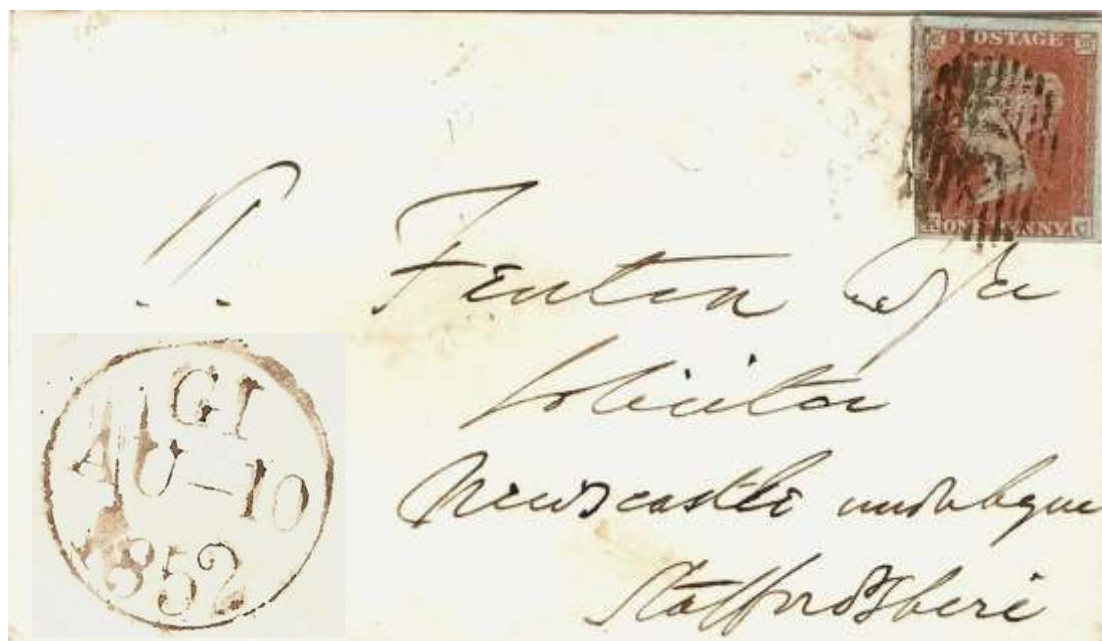 POSTAGE
ONE PENNY C
Fenton Esqr
Solicitor
Newcastle
Staffordshire
GI
AU-10
1852